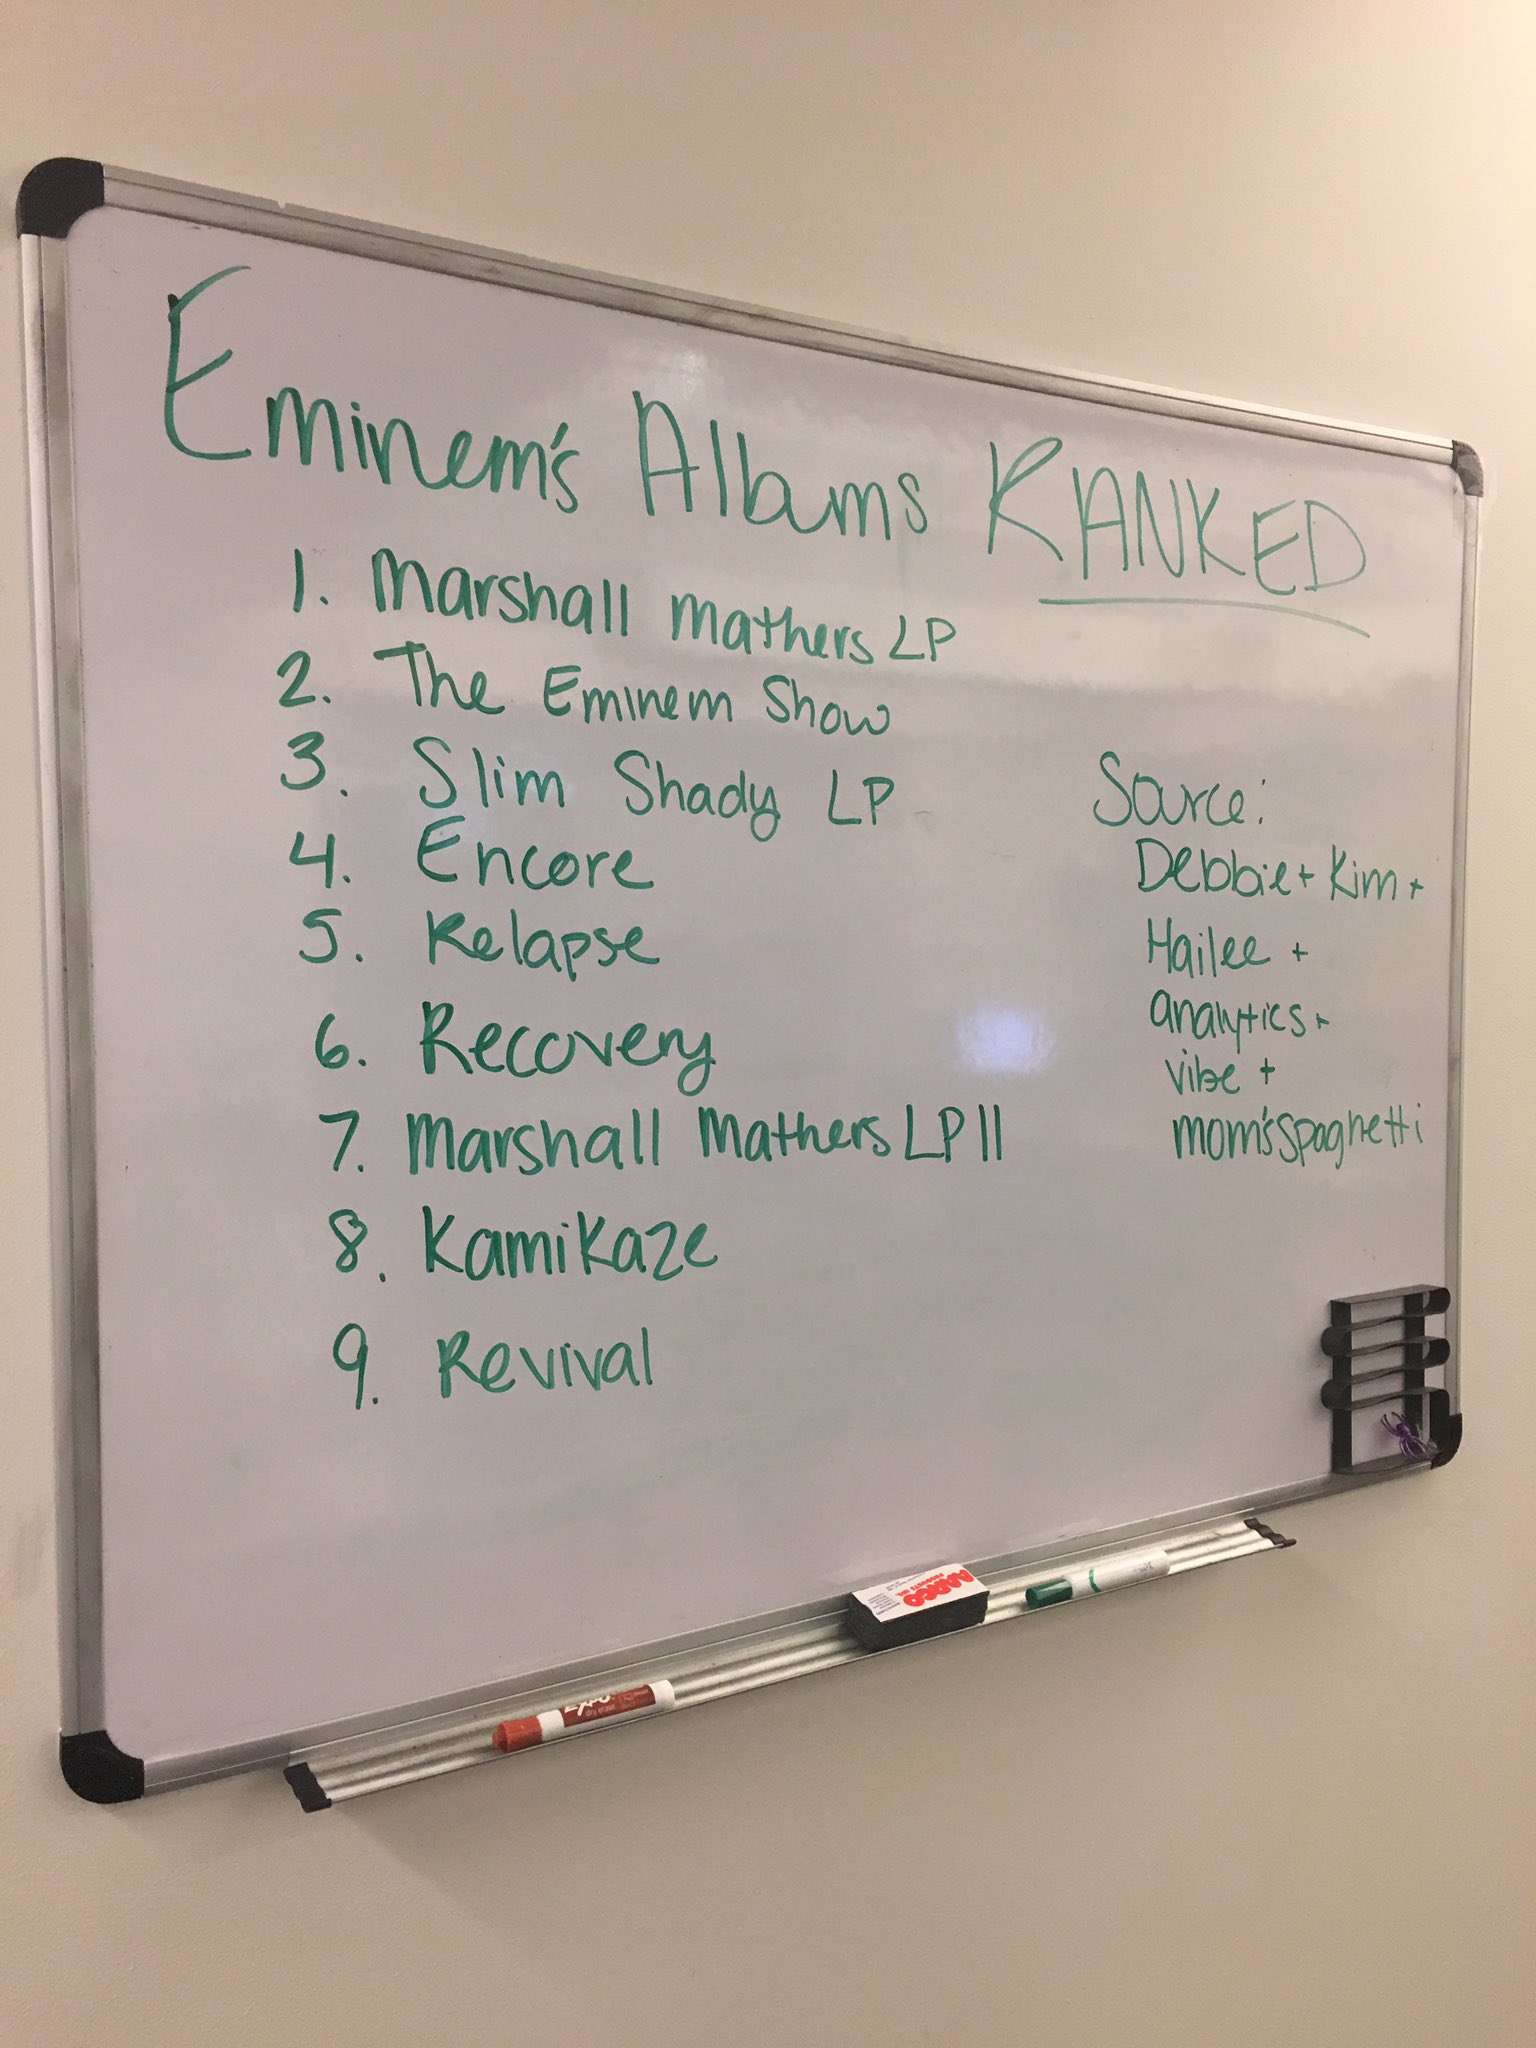 Eminem's Albums RANKED
1. Marshall Mathers LP
2. The Eminem Show
3. Slim Shady LP
4. Encore
5. Relapse
6. Recovery
7. Marshall Mathers LP II
8. Kamikaze
9. Revival
Source:
Debbie + Kim +
Hailee +
analytics +
vibe +
mom's spaghetti
EXPO
dry erase